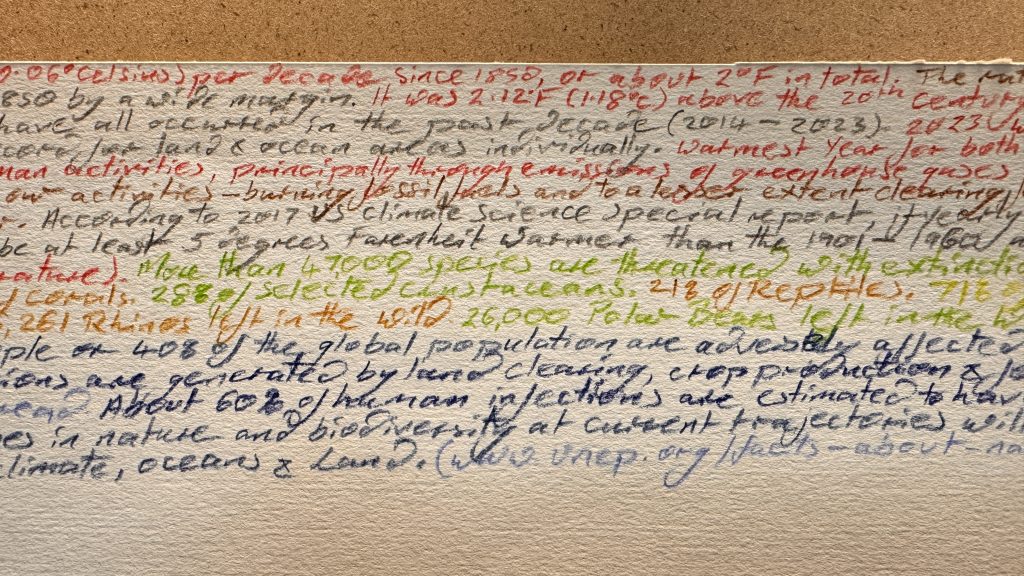 0.06°Celsius) per Decade since 1850, or about 2°F in total. The
850 by a wide margin. It was 2.12°F (1.18°c) above the 20th century
have all occurred in the past Decade (2014 – 2023) 2023
for land & ocean areas individually. Warmest Year for both
man activities, principally through emissions of greenhouse gases
our activities – burning fossil fuels and to a lesser extent clearing
r. According to 2017 US climate Science Special report, if yearly
be at least 5 degrees Farenheit warmer than the 1901 – 1960
nature). More than 47,000 species are threatened with extinctio
of corals. 28% of selected crustaceans. 21% of Reptiles. 71%
, 261 Rhinos left in the wild 26,000 Polar Bears left in the
ple or 40% of the global population are adversely affected
ions are generated by land clearing, crop production &
read About 60% of human infections are estimated to hav
es in nature and biodiversity at current trajectories with
limate, oceans & Land. (www.unep.org/facts-about-na